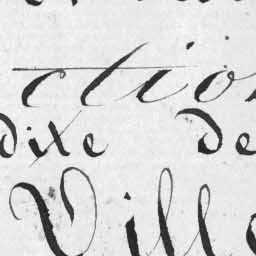 ction
dite de
Ville